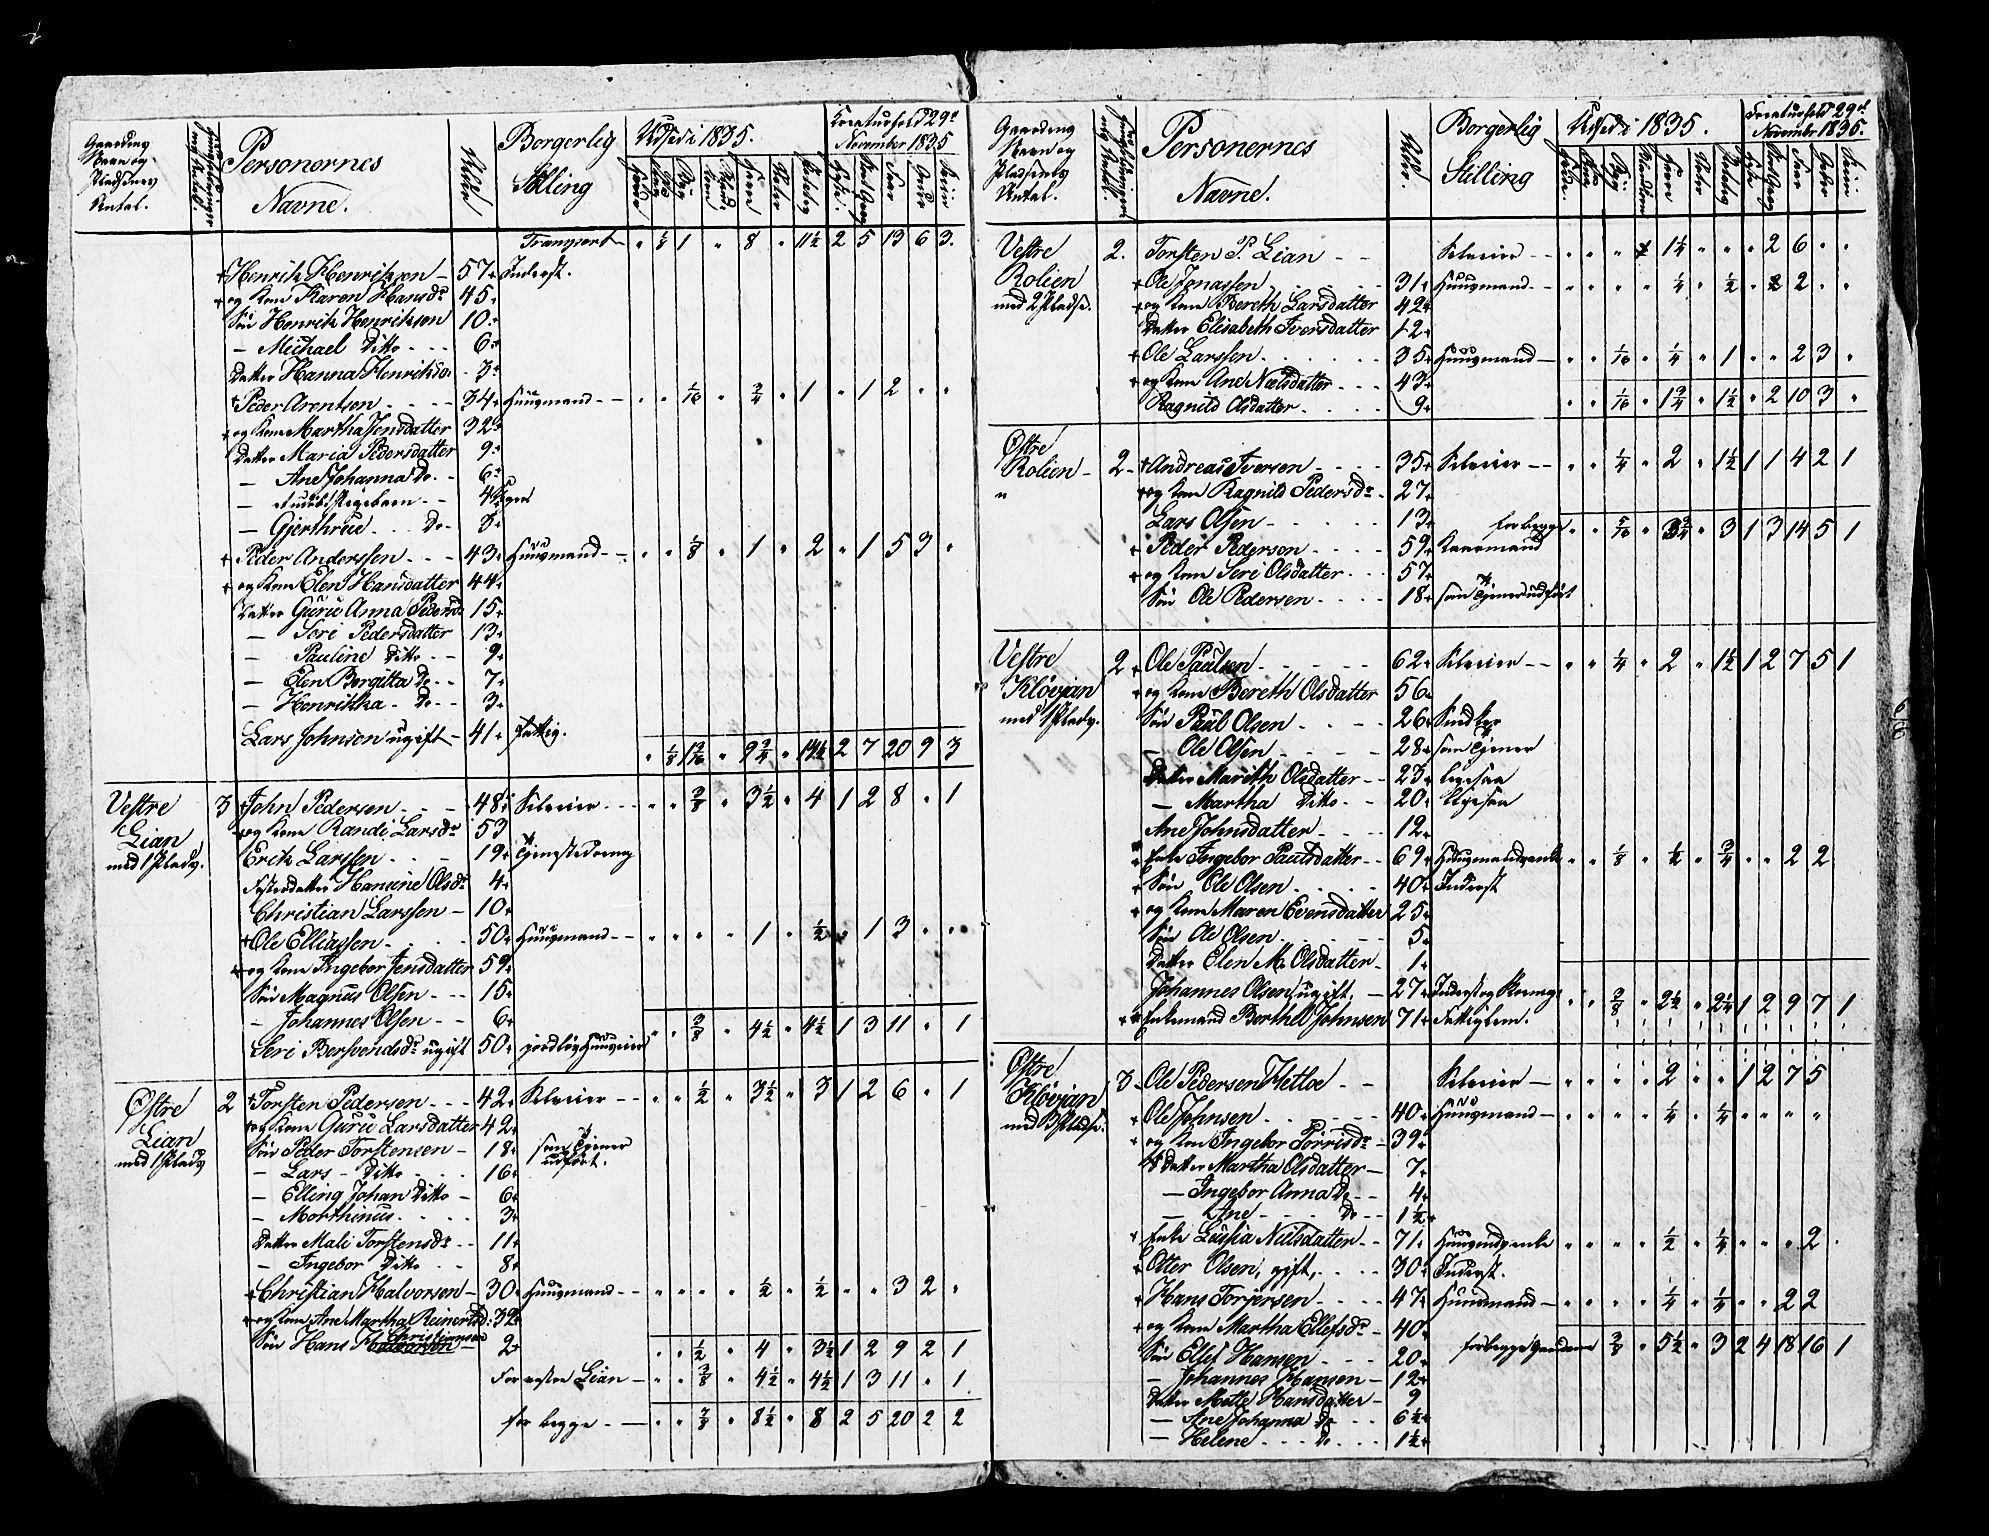 Gaardens Navn og Pladsenes Antal.
Personernes Navne.
Alder
Borgerlig Stilling
Udsæd i 1835.
Kreaturhold 29d November 1835
Transport " 1/8 1 " 8 " 11½ 2 5 13 6 3.
Henrik Henrikson – 57 Inderst.
og Kone Karen Hansdr 45
Søn Henrik Henrikson 10
– Michael Ditto 6
Datter Hanna Henriksd. 3
Peder Arentsen 34 Huusmand – " " 1/16 " ¾ " 1 " 1 2 " "
og Kone Martha Jensdatter 32
Datter Maria Pedersdatter 9
– Ane Johanna Do 6
– et udøbt Pigebarn 4 Uger
– Gjerthrue Do 3
Peder Anderssen 43 Huusmand – " " 1/8 " 1 " 2 " 1 5 3 "
og Kone Elen Hansdatter 44
Datter Guru Anna Pedersd. 15
– Seri Pedersdatter 13
– Pauline Ditto 9
– Elen Bergitta Do 7
– Henrikka Do 3
Lars Johnsen ugift – 41 Fattig.
" 1/8 1 3/16 " 9¾ " 14½ 2 7 20 9 3
Vestre Lian med 1 Plads. 3 John Pedersen 48 Selveier – " " 3/8 " 3½ " 4 1 2 8 " 1
og Kone Randi Larsdr 53
Erik Larssen 19 Tjenestedreng
Fosterdatter Hansine Olsdr 4
Christian Larssen – 10
Ole Elliassen 50 Huusmand – " " " " 1 " ½ " 1 3 " "
og Kone Ingebor Jensdatter 59
Søn Magnus Olsen 15
– Johannes Olsen 6
Seri Bersvendsdr ugift 50 jordløs Huuseier
" " 3/8 " 4½ " 4½ 1 3 11 " 1
Østre Lian med 1 Plads 2 Torsten Pedersen 42 Selveier – " " ½ " 3½ " 3 1 2 6 " 1
og Kone Guru Larsdatter 42
Søn Peder Torstensen – 18 som Tjener udført.
– Lars – Ditto 16
– Elling Johan Ditto – 6
– Morthinus 3
Datter Mali Torstensdr 11
– Ingebor Ditto 8
Christian Halvorsen – 30 Huusmand – " " " " ½ " ½ " " 3 2 "
og Kone Ane Martha Reinertsd. 32
Søn Hans Halvorsen Christiansen 2
" " ½ " 4 " 3½ 1 2 9 2 1
For vestre Lian – " " 3/8 " 4½ " 4½ 1 3 11 " 1
for begge – " " 7/8 " 8½ " 8 2 5 20 2 2
Gaardens Navn og Pladsenes Antal.
Personernes Navne.
Alder.
Borgerlig Stilling
Udsæd i 1835.
Kreaturhold 29d November 1835.
Vestre Rolien med 2 Pladse. 2. Torsten P. Lian Selveier – " " " " 1¼ " " " 2 6 " "
Ole Jonassen 31 Huusmand – " " " " ¼ " ½ " 2 " "
og Kone Bereth Larsdatter 42
Datter Elisabeth Iversdatter 12
Ole Larssen 35 Huusmand – " " 1/16 " ¼ " 1 " " 2 3 "
og Kone Ane Nielsdatter 43
Ragnild Olsdatter 9
" " 1/16 " 1¾ " 1½ " 2 10 3 "
Østre Rolien – 2 – Andreas Iversen 35 Selveier – " " ¼ " 2 " 1½ 1 1 4 2 1
og Kone Ragnild Pedersdr 27
Lars Olsen 13
for begge " " 5/16 " 3¾ " 3 1 3 14 5 1
Peder Pedersen 59 Kaarmand
og Kone Seri Olsdatter 57
Søn Ole Pedersen 18 som Tjener udført
Vestre Kløvjan med 1 Plads. 2 Ole Paulsen 62 Selveier – " " ¼ " 2 " 1½ 1 2 7 5 1
og Kone Bereth Olsdatter 56
Søn Paul Olsen 26
– Ole Olsen 28 som Tjener
Datter Marith Olsdatter 23 ligesaa
– Martha Ditto 20 ligesaa
Ane Johnsdatter 12
Enke Ingebor Paulsdatter 69 Huusmandsenke " " 1/8 " ½ " ¾ " " 2 2
Søn Ole Olsen 40 Inderst
og Kone Maren Evensdatter 25
Søn Ole Olsen 5
Datter Elen M. Olsdatter 1
Johannes Olsen, ugift, – 27 Inderst og
Enkemand Berthel Johnsen 71 Fattiglem.
" " 3/8 " 2½ " 2¼ 1 2 9 7 1
Østre Kløvjan med 3 Pladse. 3 Ole Pedersen Hetloe Selveier – " " " " 2 " " 1 2 7 5
Ole Johnsen 40 Huusmand – " " " " ¼ " ¼ " " " "
og Kone Ingebor Torrisdr – 39
Datter Martha Olsdatter – 7
– Ingebor Anna Do 4
– Ane Do 1½
Enke Lusia Nielsdatter 71 Huusmdsenke " " " " ½ " ¼ " " " 2 "
Oter Olsen, gift, 30 Inderst.
Hans Torjersen 47 Huusmand – " " " " ¼ " ¼ " " 2 2
og Kone Martha Ellefsdr – 40
Søn Ellef Hansen 20 for begge Gaardene 3/8 " 5½ " 3 2 4 18 16 1
– Johannes Hansen – 12
Datter Mette Hansdatter – 9
– Ane Johanna Do 6½
– Helene Do 1½